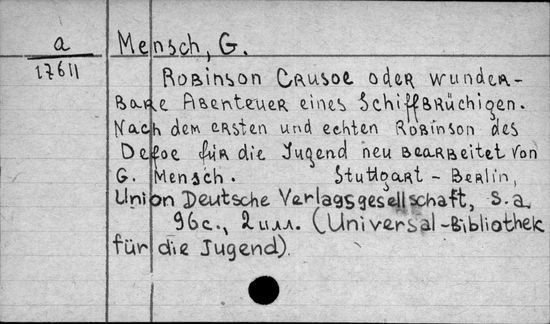 a
17611
Mensch, G.
Robinson Crusoe oder wunder-
bare Abenteuer eines Schiffbrüchigen.
Nach dem ersten und echten Robinson des
Defoe für die Jugend neu bearbeitet von
G. Mensch. Stuttgart - Berlin,
Union Deutsche Verlagsgesellschaft, s.a.
96c., 2 илл. (Universal-Bibliothek
für die Jugend).